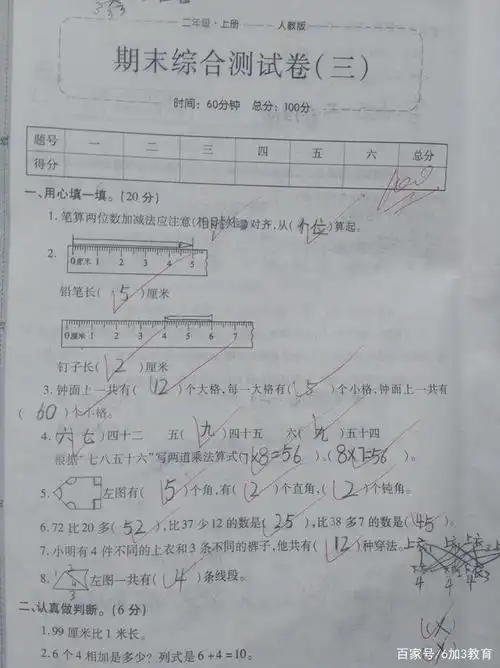 二年级·上册 人教版
期末综合测试卷(三)
时间: 60分钟 总分: 100分
题号 一 二 三 四 五 六 总分
得分
100
一、用心填一填。(20分)
1.笔算两位数加减法应注意(相同数位)对齐,从(个位)算起。
2.
0厘米 1 2 3 4 5
铅笔长(5)厘米
0厘米 1 2 3 4 5 6 7
钉子长(2)厘米
3.钟面上一共有(12)个大格,每一大格有(5)个小格,钟面上一共有
(60)个小格。
4.六七四十二 五(九)四十五 六(九)五十四
根据“七八五十六”写两道乘法算式(7×8=56)、(8×7=56)。
5.左图有(5)个角,有(2)个直角,(2)个钝角。
6.72比20多(52),比37少12的数是(25),比38多7的数是(45)。
7.小明有4件不同的上衣和3条不同的裤子,他共有(12)种穿法。
4 4 4
8.左图一共有(4)条线段。
二、认真做判断。(6分)
1.99厘米比1米长。 (×)
2.6个4相加是多少?列式是6+4=10。
百家号/6加3教育